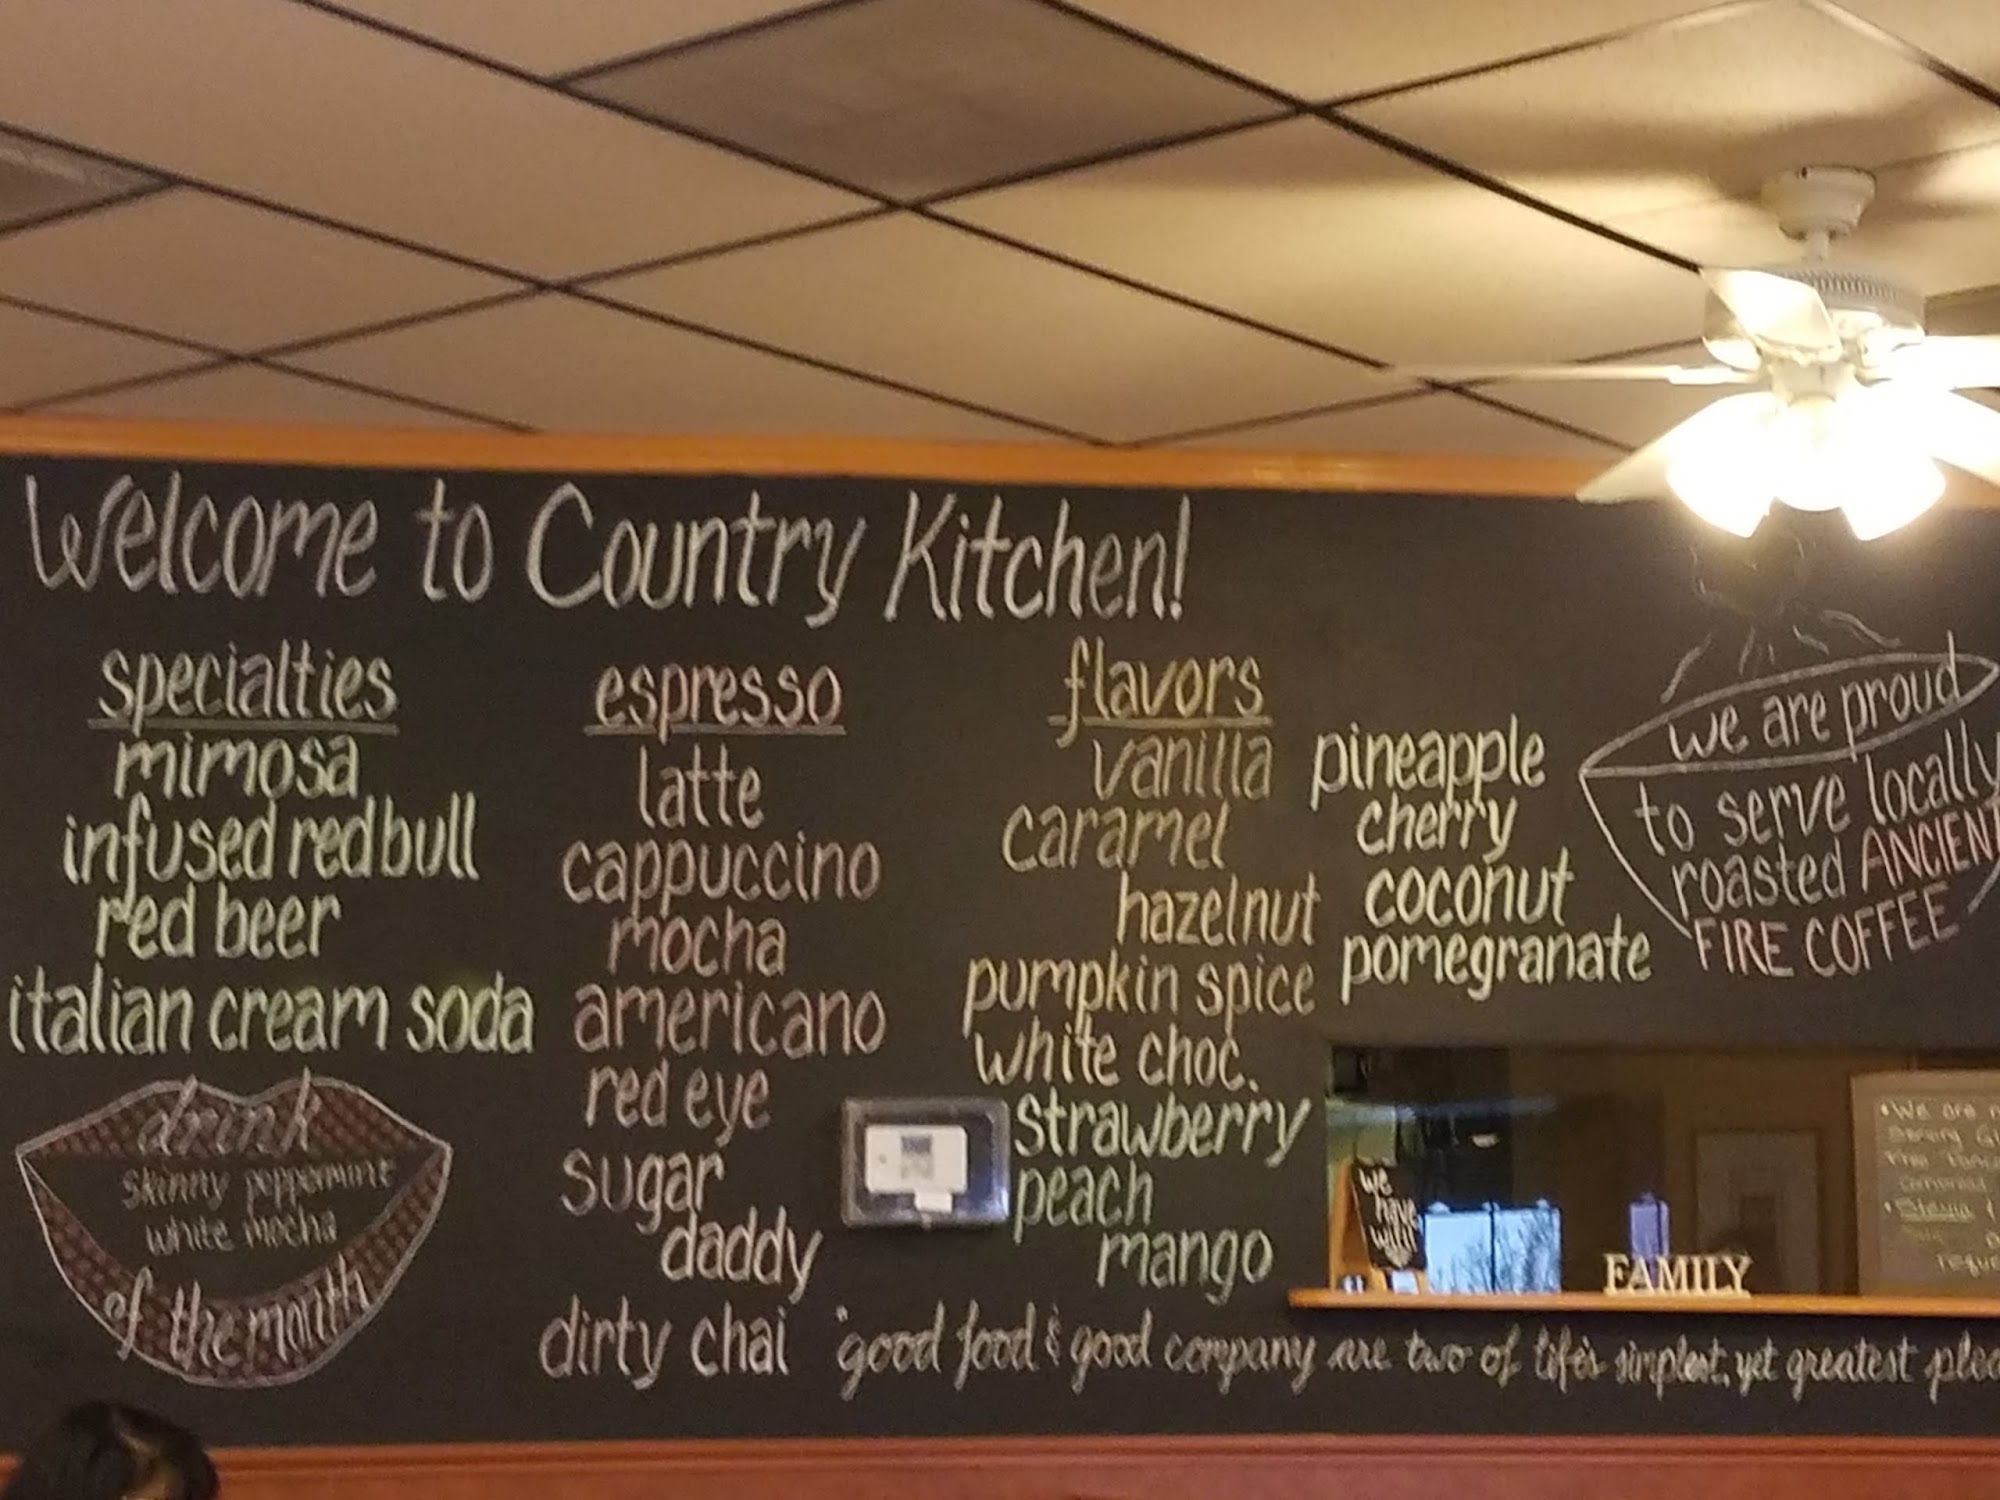 Welcome to Country Kitchen!
specialties
mimosa
infused redbull
red beer
italian cream soda
drink
skinny peppermint
white mocha
of the month
espresso
latte
cappuccino
mocha
americano
red eye
sugar
daddy
dirty chai
flavors
vanilla
caramel
hazelnut
pumpkin spice
white choc.
strawberry
peach
mango
pineapple
cherry
coconut
pomegranate
we are proud
to serve locally
roasted ANCIENT
FIRE COFFEE
we
have
wifi
FAMILY
• We are
"good food & good company are two of life's simplest, yet greatest